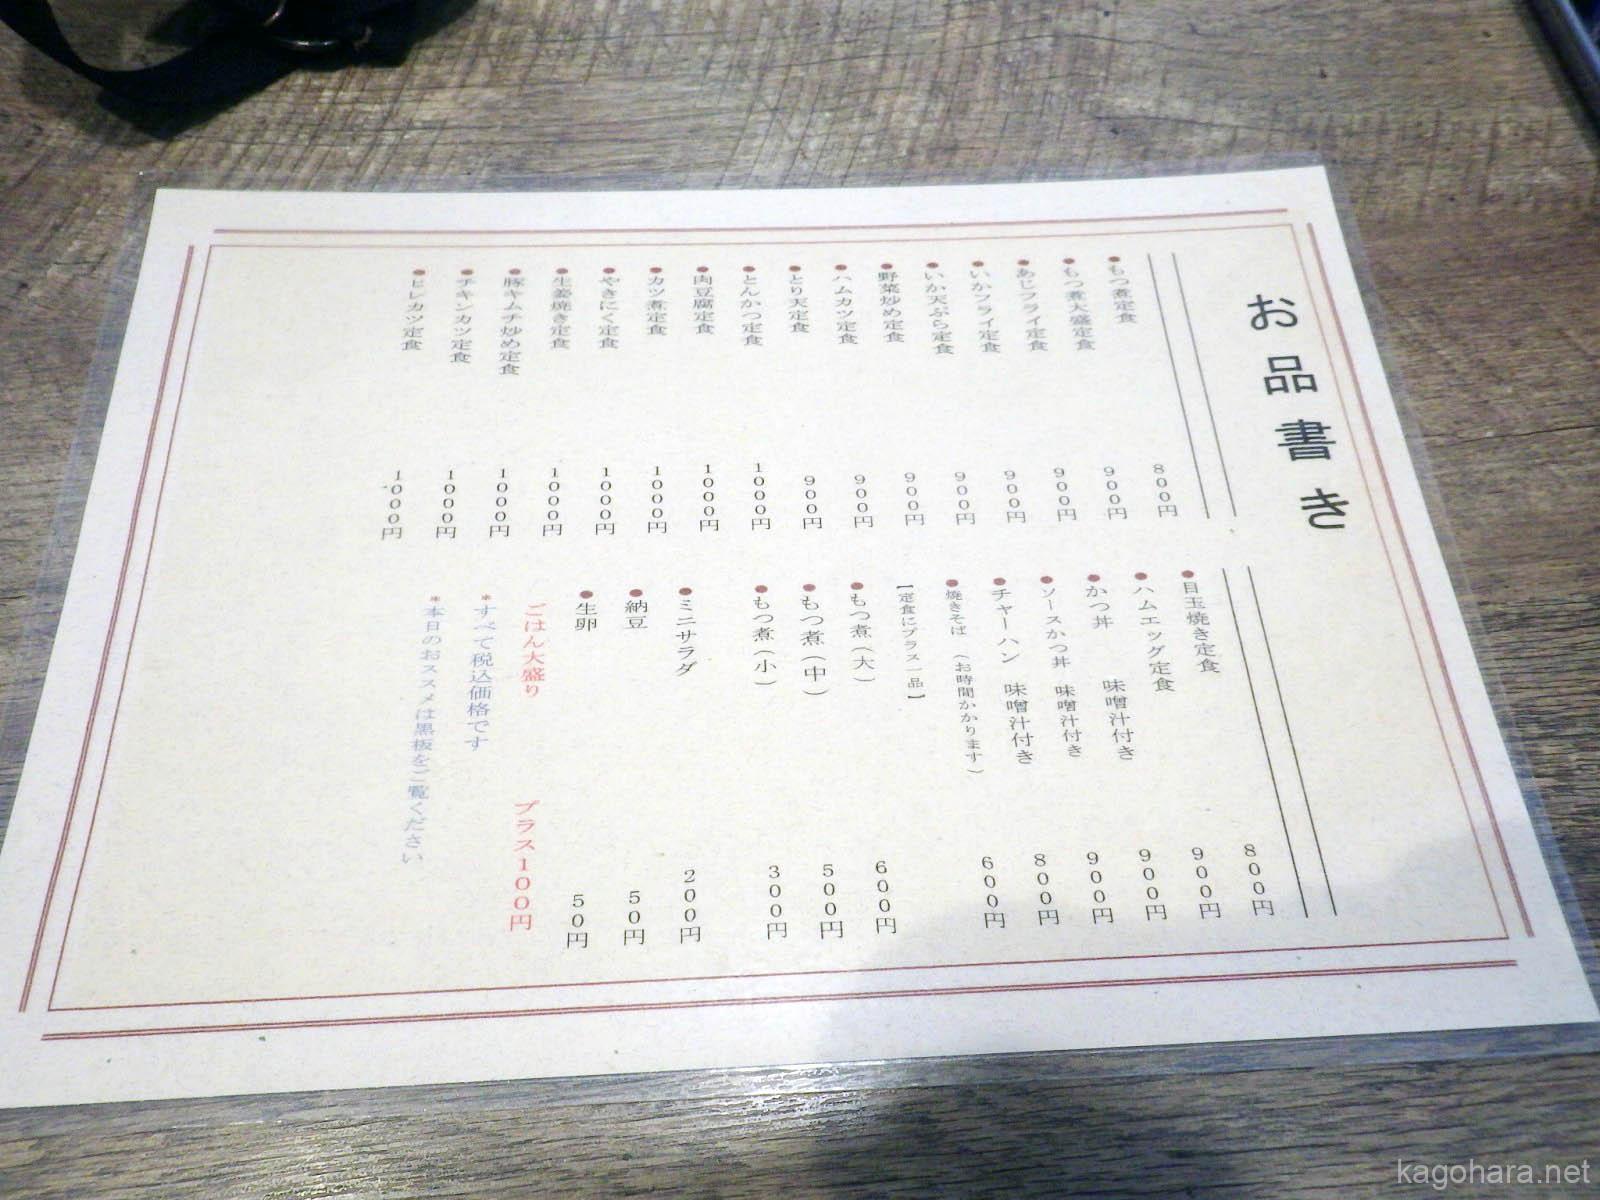 お品書き
●もつ煮定食 800円
●もつ煮大盛定食 900円
●あじフライ定食 900円
●いかフライ定食 900円
●いか天ぷら定食 900円
●野菜炒め定食 900円
●ハムカツ定食 900円
●とり天定食 900円
●とんかつ定食 1000円
●肉豆腐定食 1000円
●カツ煮定食 1000円
●やきにく定食 1000円
●生姜焼き定食 1000円
●豚キムチ炒め定食 1000円
●チキンカツ定食 1000円
●ヒレカツ定食 1000円
●目玉焼き定食 800円
●ハムエッグ定食 900円
●かつ丼 味噌汁付き 900円
●ソースかつ丼 味噌汁付き 900円
●チャーハン 味噌汁付き 800円
●焼きそば (お時間かかります) 600円
【定食にプラス一品】
●もつ煮(大) 600円
●もつ煮(中) 500円
●もつ煮(小) 300円
●ミニサラダ 200円
●納豆 50円
●生卵 50円
ごはん大盛り プラス100円
*すべて税込価格です
*本日のおススメは黒板をご覧ください
kagohara.net